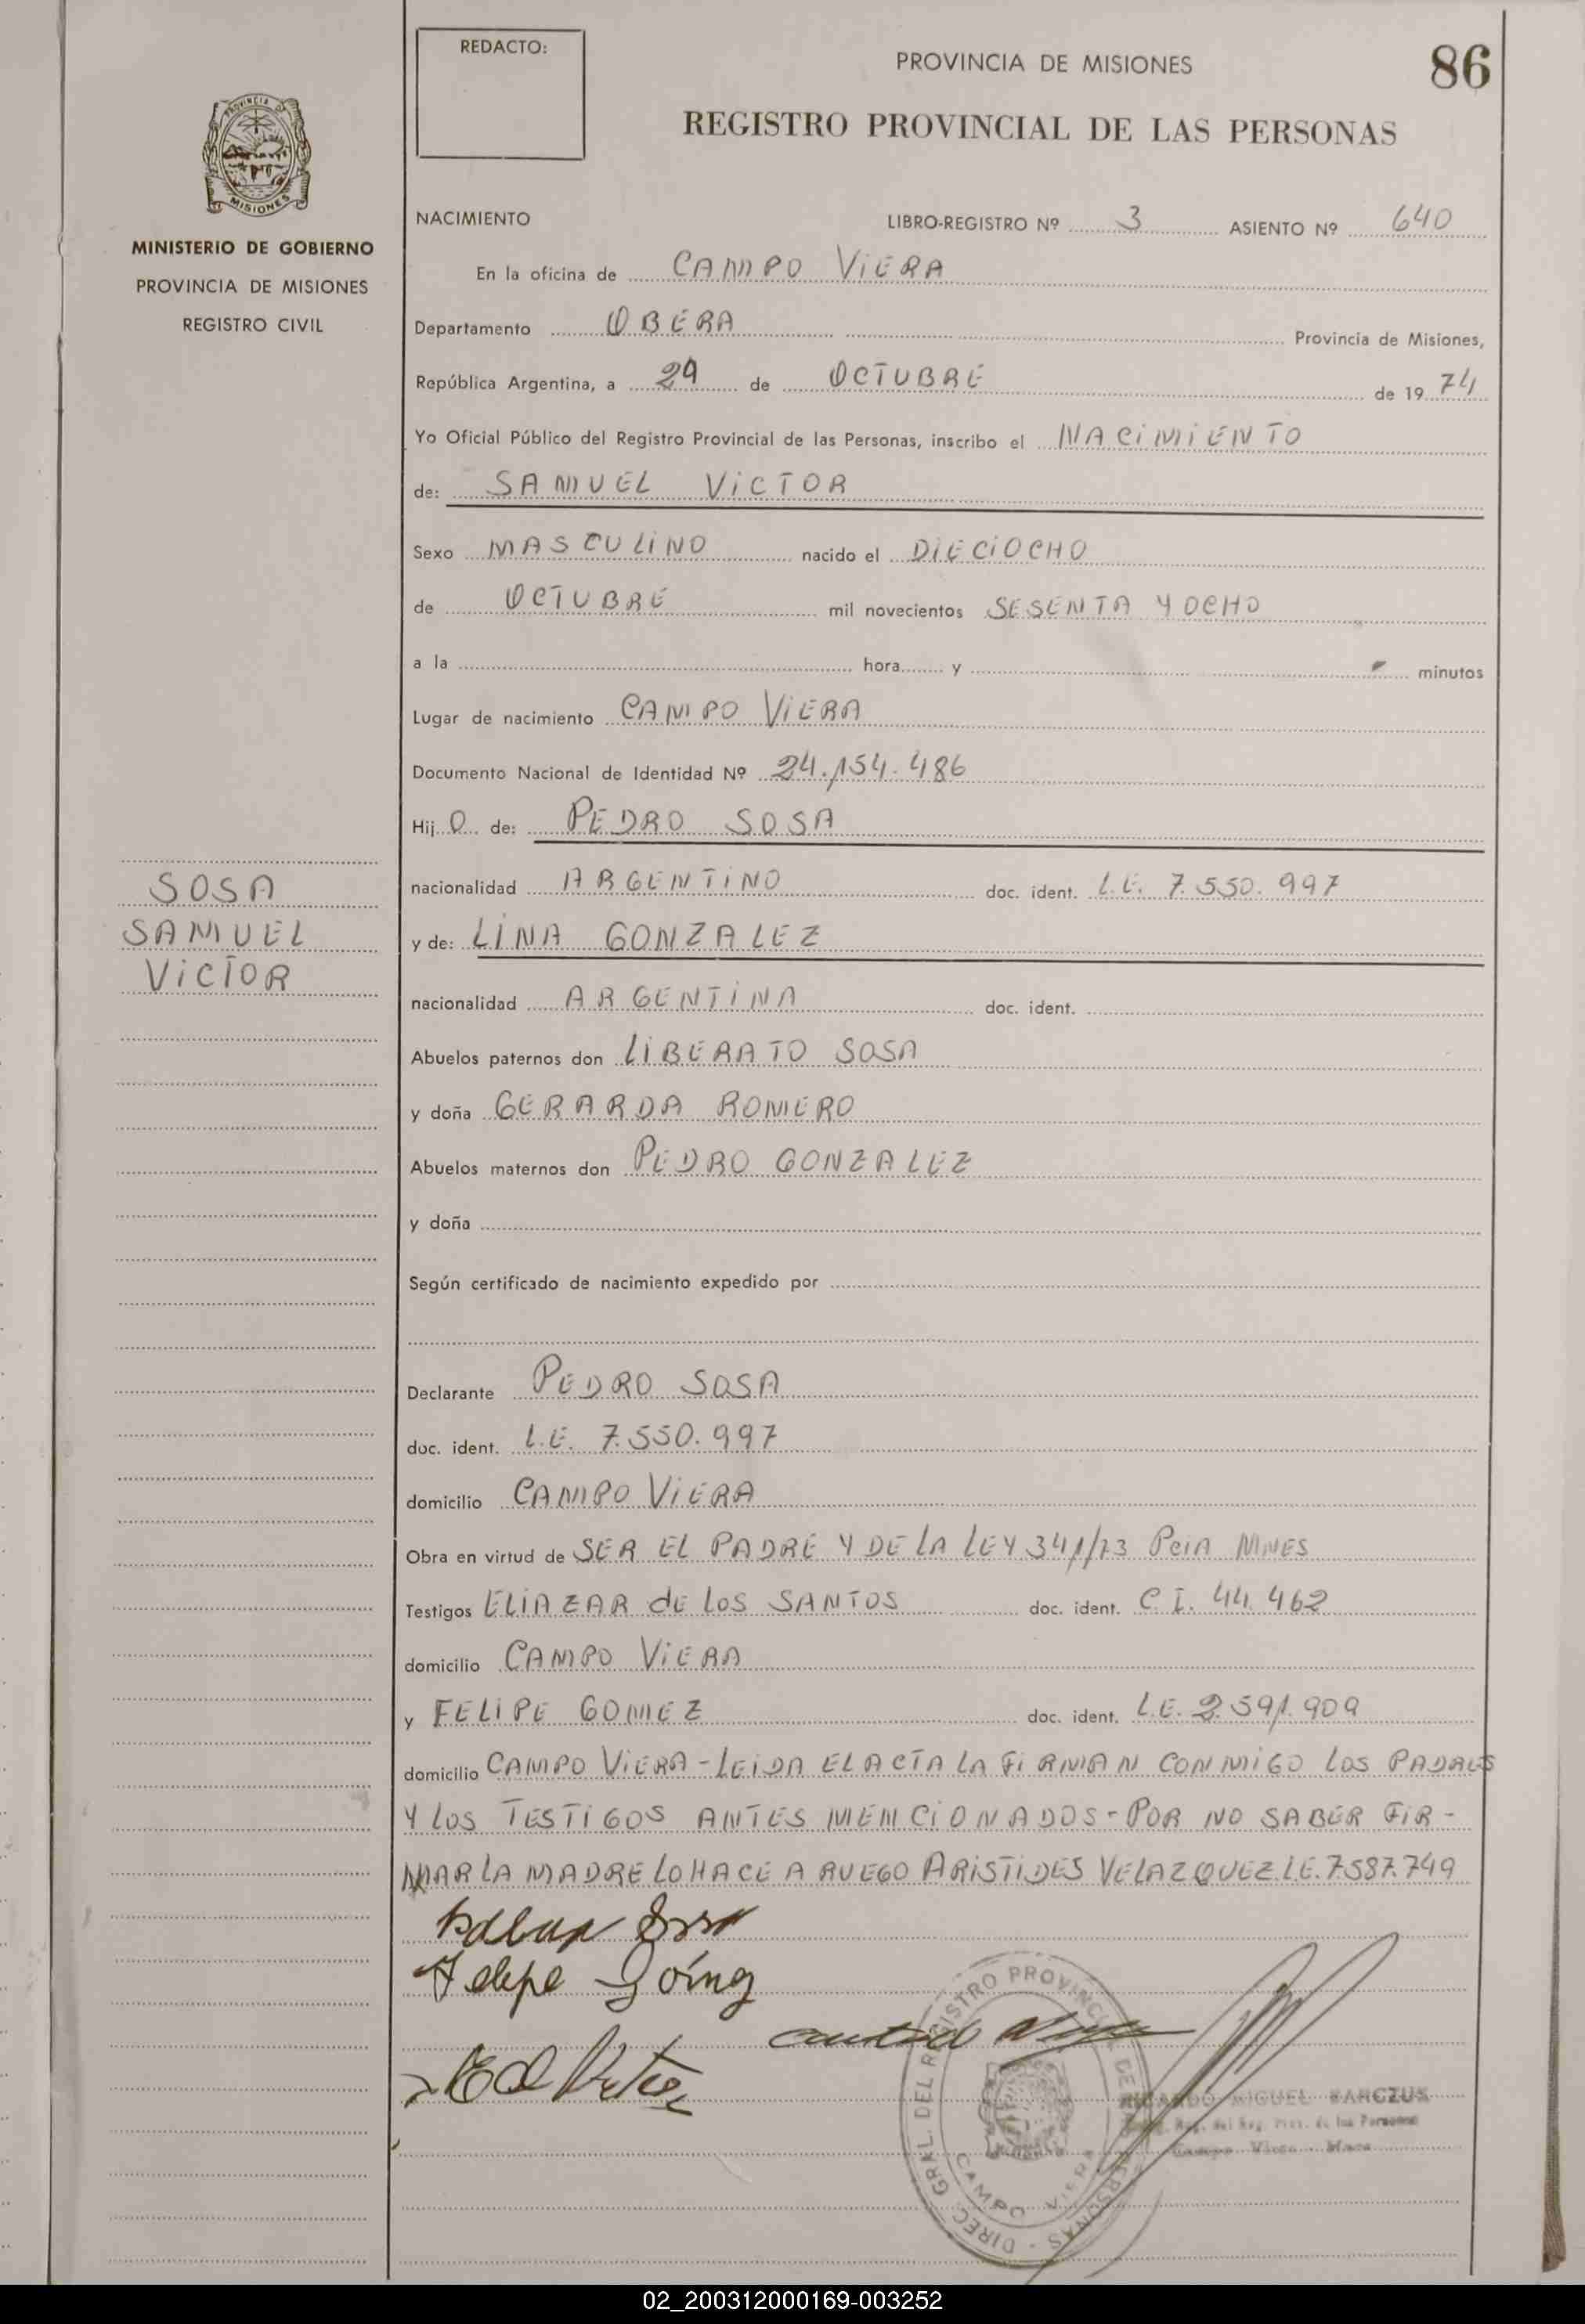 REDACTO:
PROVINCIA DE MISIONES
86
REGISTRO PROVINCIAL DE LAS PERSONAS
PROVINCIA DE
MISIONES
MINISTERIO DE GOBIERNO
PROVINCIA DE MISIONES
REGISTRO CIVIL
NACIMIENTO LIBRO-REGISTRO Nº 3 ASIENTO Nº 640
En la oficina de CAMPO VIERA
Departamento OBERA Provincia de Misiones,
República Argentina, a 29 de OCTUBRE de 1974
Yo Oficial Público del Registro Provincial de las Personas, inscribo el NACIMIENTO
de: SAMUEL VICTOR
Sexo MASCULINO nacido el DIECIOCHO
de OCTUBRE mil novecientos SESENTA Y OCHO
a la hora y minutos
Lugar de nacimiento CAMPO VIERA
Documento Nacional de Identidad Nº 24.154.486
Hij O de: PEDRO SOSA
nacionalidad ARGENTINO doc. ident. L.E. 7.550.997
y de: LINA GONZALEZ
nacionalidad ARGENTINA doc. ident.
Abuelos paternos don LIBERATO SOSA
y doña GERARDA ROMERO
Abuelos maternos don PEDRO GONZALEZ
y doña
Según certificado de nacimiento expedido por
Declarante PEDRO SOSA
doc. ident. L.E. 7.550.997
domicilio CAMPO VIERA
Obra en virtud de SER EL PADRE Y DE LA LEY 341/73 PCIA MNES
Testigos ELIAZAR DE LOS SANTOS doc. ident. C.I. 44.462
domicilio CAMPO VIERA
y FELIPE GOMEZ doc. ident. L.E. 2.591.909
domicilio CAMPO VIERA - LEIDA EL ACTA LA FIRMAN CONMIGO LOS PADRES
Y LOS TESTIGOS ANTES MENCIONADOS - POR NO SABER FIR-
MAR LA MADRE LO HACE A RUEGO ARISTIDES VELAZQUEZ L.E. 7.587.749
SOSA
SAMUEL
VICTOR
DIREC. GRAL. DEL REGISTRO PROVINCIAL DE PERSONAS
CAMPO VIERA
RICARDO MIGUEL BARCZUK
Campo Viera
02_200312000169-003252